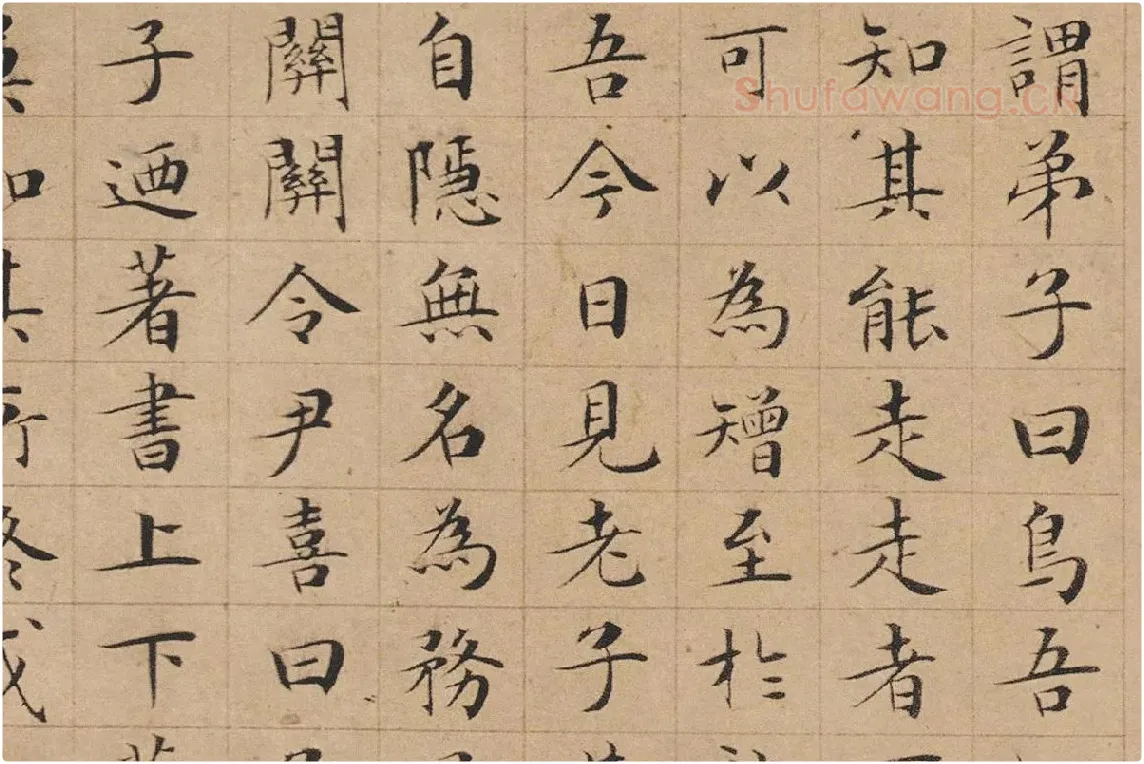 謂弟子曰鳥吾
知其能走走者
可以為矰至於
吾今日見老子
自隱無名為務
關關令尹喜曰
子迺著書上下
Shufawang.cn